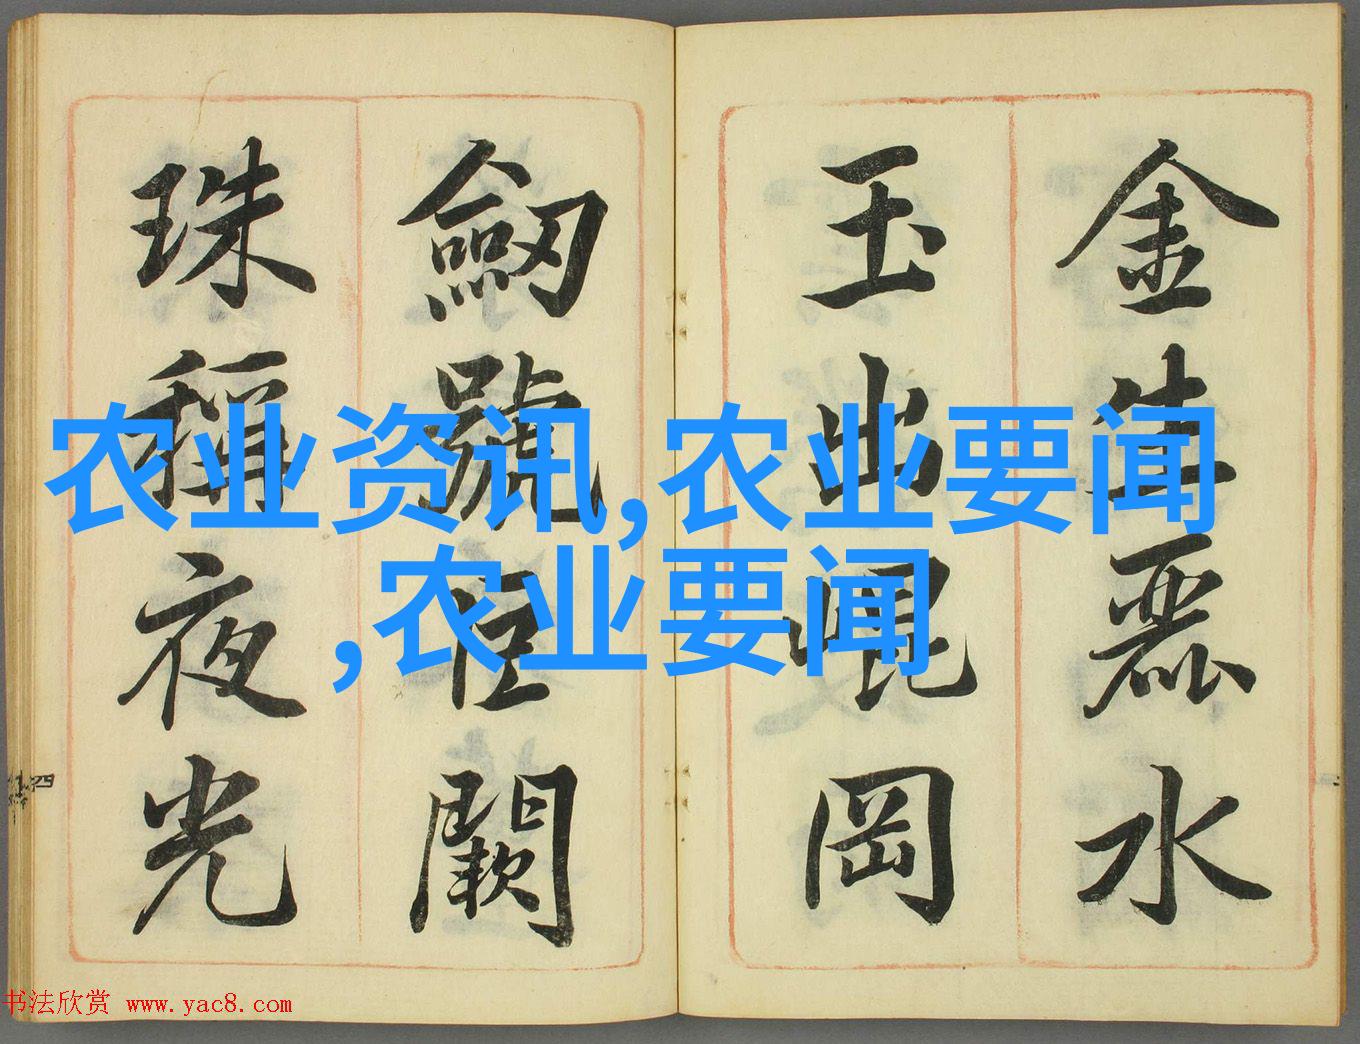 金生麗水
玉出崐岡
劒號巨闕
珠稱夜光
農业资讯,农业要闻
,农业要闻
四
书法欣赏 www.yac8.com